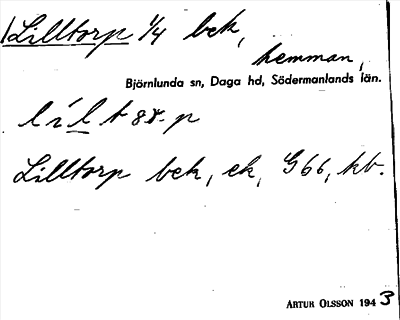 Lilltorp 1/4 bek,
hemman,
Björnlunda sn, Daga hd, Södermanlands län.
Lilltorp bek, ek, G66, kb.
ARTUR OLSSON 1943